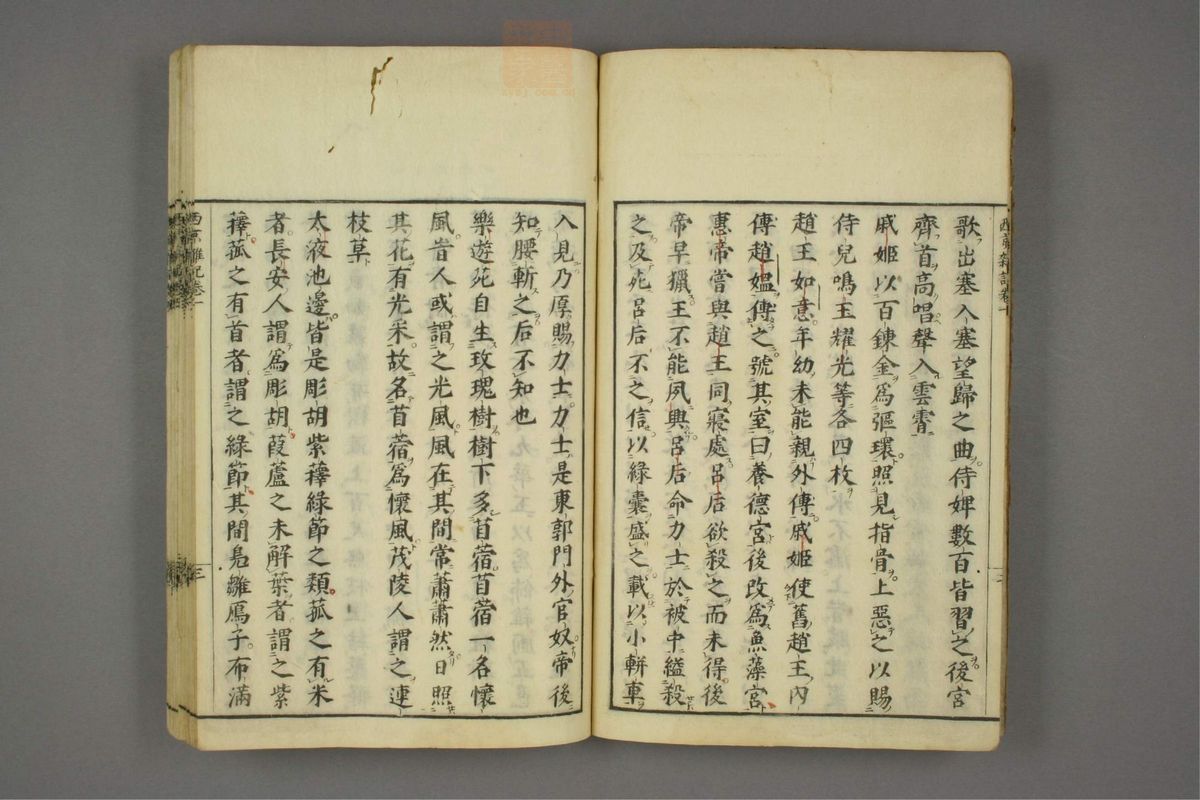 歌出塞入塞望歸之曲侍婢數百皆習之後宮
齊首高唱聲入雲霄
戚姬以百鍊金為彄環照見指骨上惡之以賜
侍兒鳴玉耀光等各四枚
趙王如意年幼未能親外傅戚姬使舊趙王內
傅趙媼傅之號其室曰養德宮後改為魚藻宮
惠帝嘗與趙王同寢處呂后欲殺之而未得後
帝早獵王不能夙興呂后命力士於被中縊殺
之及死呂后不之信以綠囊盛之載以小軿車
入見乃厚賜力士力士是東郭門外官奴帝後
知腰斬之后不知也
樂遊苑自生玫瑰樹樹下多苜蓿苜蓿一名懷
風時人或謂之光風風在其間常蕭蕭然日照
其花有光采故名苜蓿為懷風茂陵人謂之連
枝草
太液池邊皆是彫胡紫蘀綠節之類菰之有米
者長安人謂為彫胡葭蘆之未解葉者謂之紫
蘀菰之有首者謂之綠節其間鳧雛鴈子布滿
西京雜記卷一
三